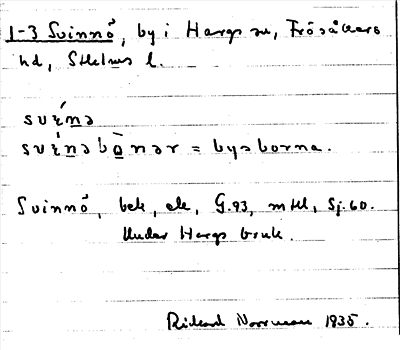 1-3 Svinnö, by i Hargs sn, Frösåkers
hd, Sthlms l.
svı̨́nə
svı̨́nəbò̱nər = bysborna.
Svinnö, bek, ek, G.93, mtl, Sj.60.
Under Hargs bruk.
Rickard Norrman 1935.